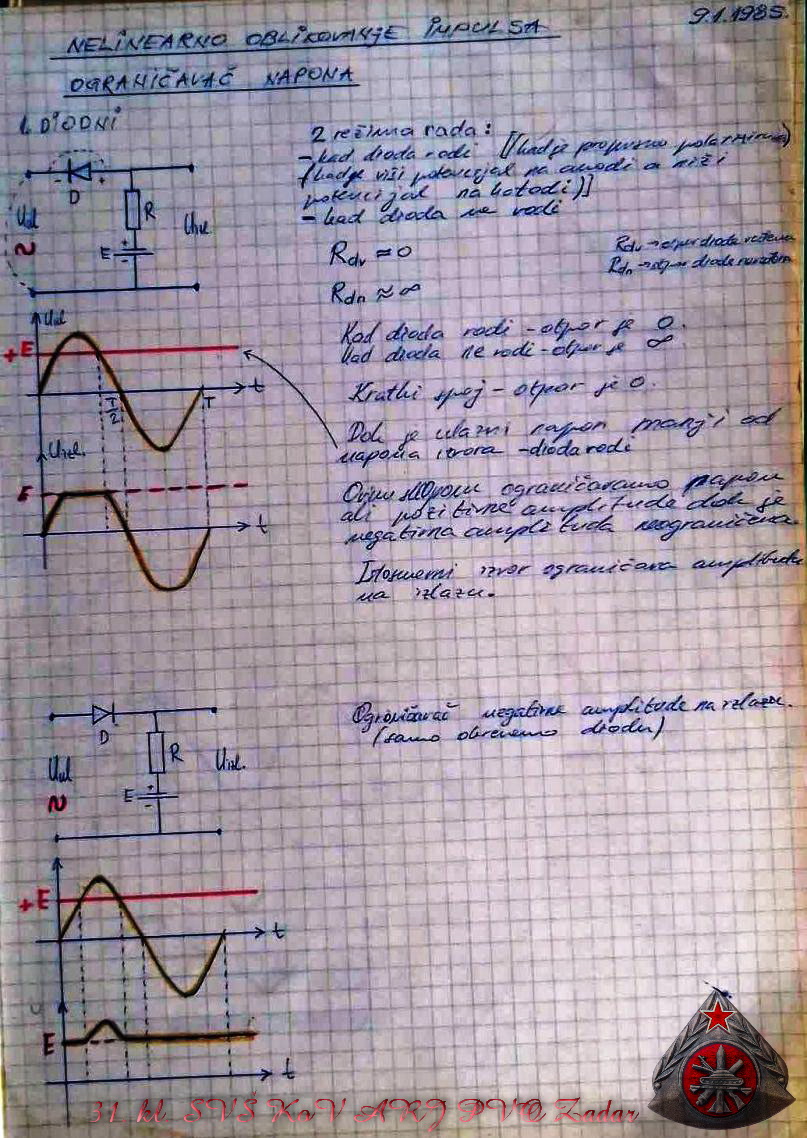 9.1.1985.
NELINEARNO OBLIKOVANJE IMPULSA
OGRANIČAVAČ NAPONA
1. DIODNI
2 režima rada:
- kad dioda vodi [(kad je propusno polarizirana)
(kad je viši potencijal na anodi a niži
potencijal na katodi)]
- kad dioda ne vodi
D
R
Uul
Uizl
E
+
-
Rdv ≈ 0
Rdn ≈ ∞
Rdv → otpor diode
Rdn → otpor diode
Kad dioda vodi - otpor je 0.
Kad dioda ne vodi - otpor je ∞
Kratki spoj - otpor je 0.
Dok je ulazni napon manji od
napona izvora - dioda vodi
Ovim ograničavamo napon
ali pozitivne amplitude dok je
negativna amplituda neograničena.
Istosmerni izvor ograničava amplitudu
na izlazu.
Uul
+E
T/2
T
t
Uizl.
E
t
Ograničavač negativne amplitude na izlazu.
(samo okrenemo diodu)
D
R
Uul
Uizl.
E
+
-
+E
t
E
t
31. kl. SVŠ KoV ARJ PVO Zadar